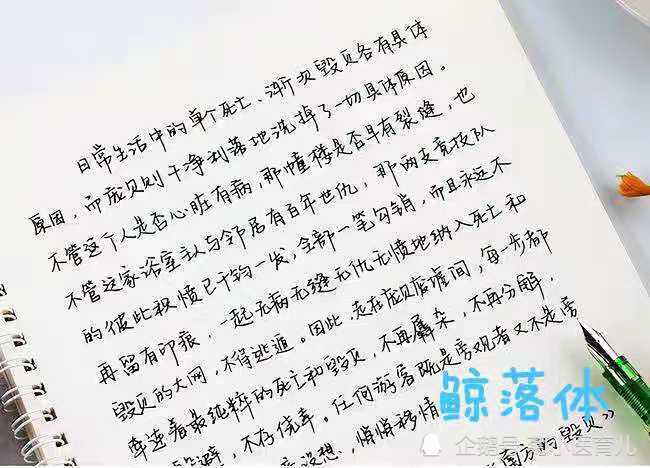 日常生活中的单个死亡、渐次毁灭各有具体
原因，而庞贝则干净利落地洗掉了一切具体原因。
不管这个人是否心脏有病，那幢楼是否早有裂缝，也
不管这家浴室主人与邻居有百年世仇，那两支竞技队
的彼此积愤已千钧一发，全部一笔勾销，而且永远不
再留有印痕，一起无病无缝无仇无愤地纳入死亡和
毁灭的大网，不得逃遁。因此，走在庞贝废墟间，每一步都
牵连着最纯粹的死亡和毁灭，不再羼杂，不再分解，
避，不存侥幸。任何游客既是旁观者又不是旁
设想，悄悄移情
方的毁灭》
鲸落体
企鹅号
育儿